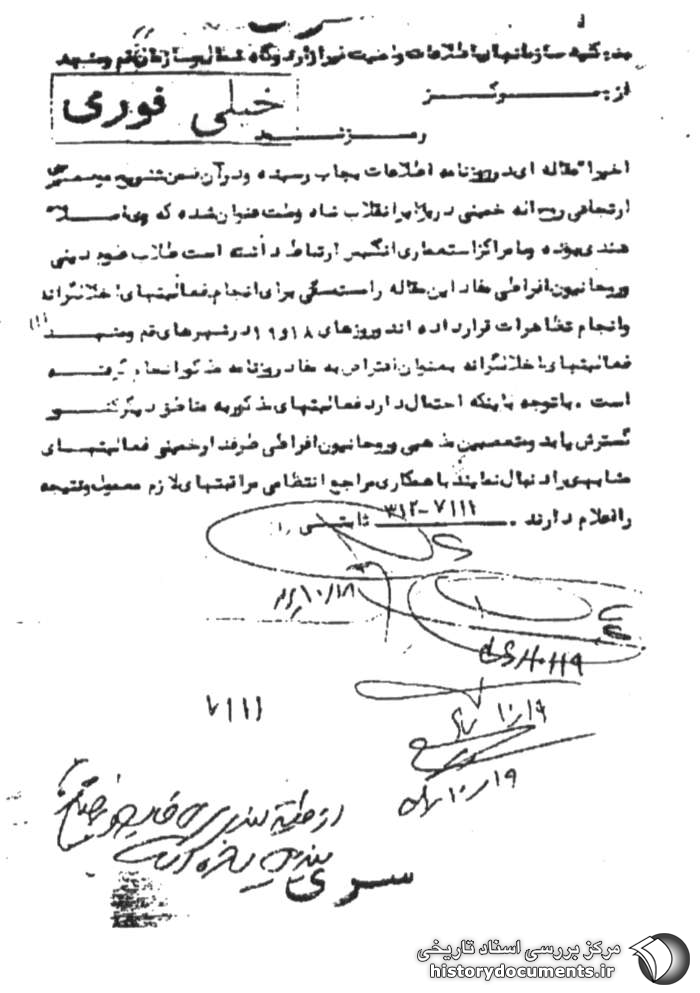 به: کلیه سازمانهای اطلاعات و امنیت غیر از اردوگاه شمال و سازمان قم و مشهد
از: مرکز
خیلی فوری
رمز شد
اخیرا مقاله ای در روزنامه اطلاعات بچاپ رسیده و در آن ضمن تشریح
ارتجاعی روح اله خمینی در برابر انقلاب شاه و ملت عنوان شده که وی اصلا
هندی بوده و با مراکز استعماری انگلیس ارتباط داشته است طلاب علوم دینی
و روحانیون افراطی مفاد این مقاله را مستمسکی برای انجام فعالیتهای اخلالگرانه
و انجام تظاهرات قرار داده اند و روزهای ۱۸ و ۱۹ در شهرهای قم و مشهد
فعالیتهای اخلالگرانه بعنوان اعتراض به مفاد روزنامه مذکور انجام گرفته
است . با توجه باینکه احتمال دارد فعالیتهای مذکور به مناطق دیگر کشور
گسترش یابد و متعصبین مذهبی و روحانیون افراطی طرفدار خمینی فعالیتهای
مشابهی را دنبال نمایند با همکاری مراجع انتظامی مراقبتهای لازم معمول و نتیجه
را اعلام دارند . ۷۱۱۱-۳۱۲ ثابتی
۱۰/۱۸
۱۰/۱۹
۷۱۱۱
۱۰/۱۹
۱۰/۱۹
سری
مرکز بررسی اسناد تاریخی
historydocuments.ir